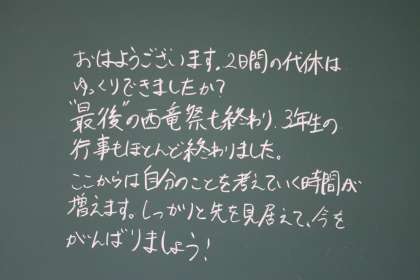 おはようございます。2日間の代休は
ゆっくりできましたか?
"最後"の西竜祭も終わり、3年生の
行事もほとんど終わりました。
ここからは自分のことを考えていく時間が
増えます。しっかりと先を見居えて、今を
がんばりましょう!